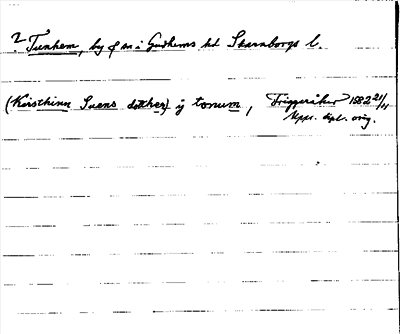 ? Tunhem, by o sn i Gudhems hd Skaraborgs l.
(Kirsthinn Suens dotther) ij tonum, Friggeråker 1582 21/11
Upps. dipl. orig.